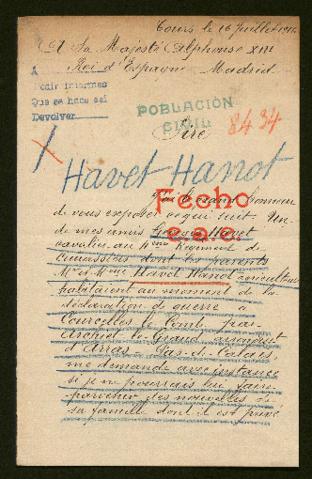 Tours le 16 Juillet
Sa Majesté Alphonse XIII
Roi d'Espagne Madrid
A
Pedir informes
Que se hace así
Devolver
POBLACIÓN
CIVIL
8434
Sire
Havet Hanot
Fecho
honneur
de vous exposer ce qui suit. Un
de mes amis Havet
cavalier au Régiment de
cuirassiers dont les parents
Mr et Mme Havet Hanot
habitaient au moment de la
déclaration de guerre à
Courcelles le Comte par
Achiet le Grand arrondt
d'Arras Pas-de-Calais,
me demande avec instance
si je ne pourrais lui faire
parvenir des nouvelles de
sa famille dont il est privé